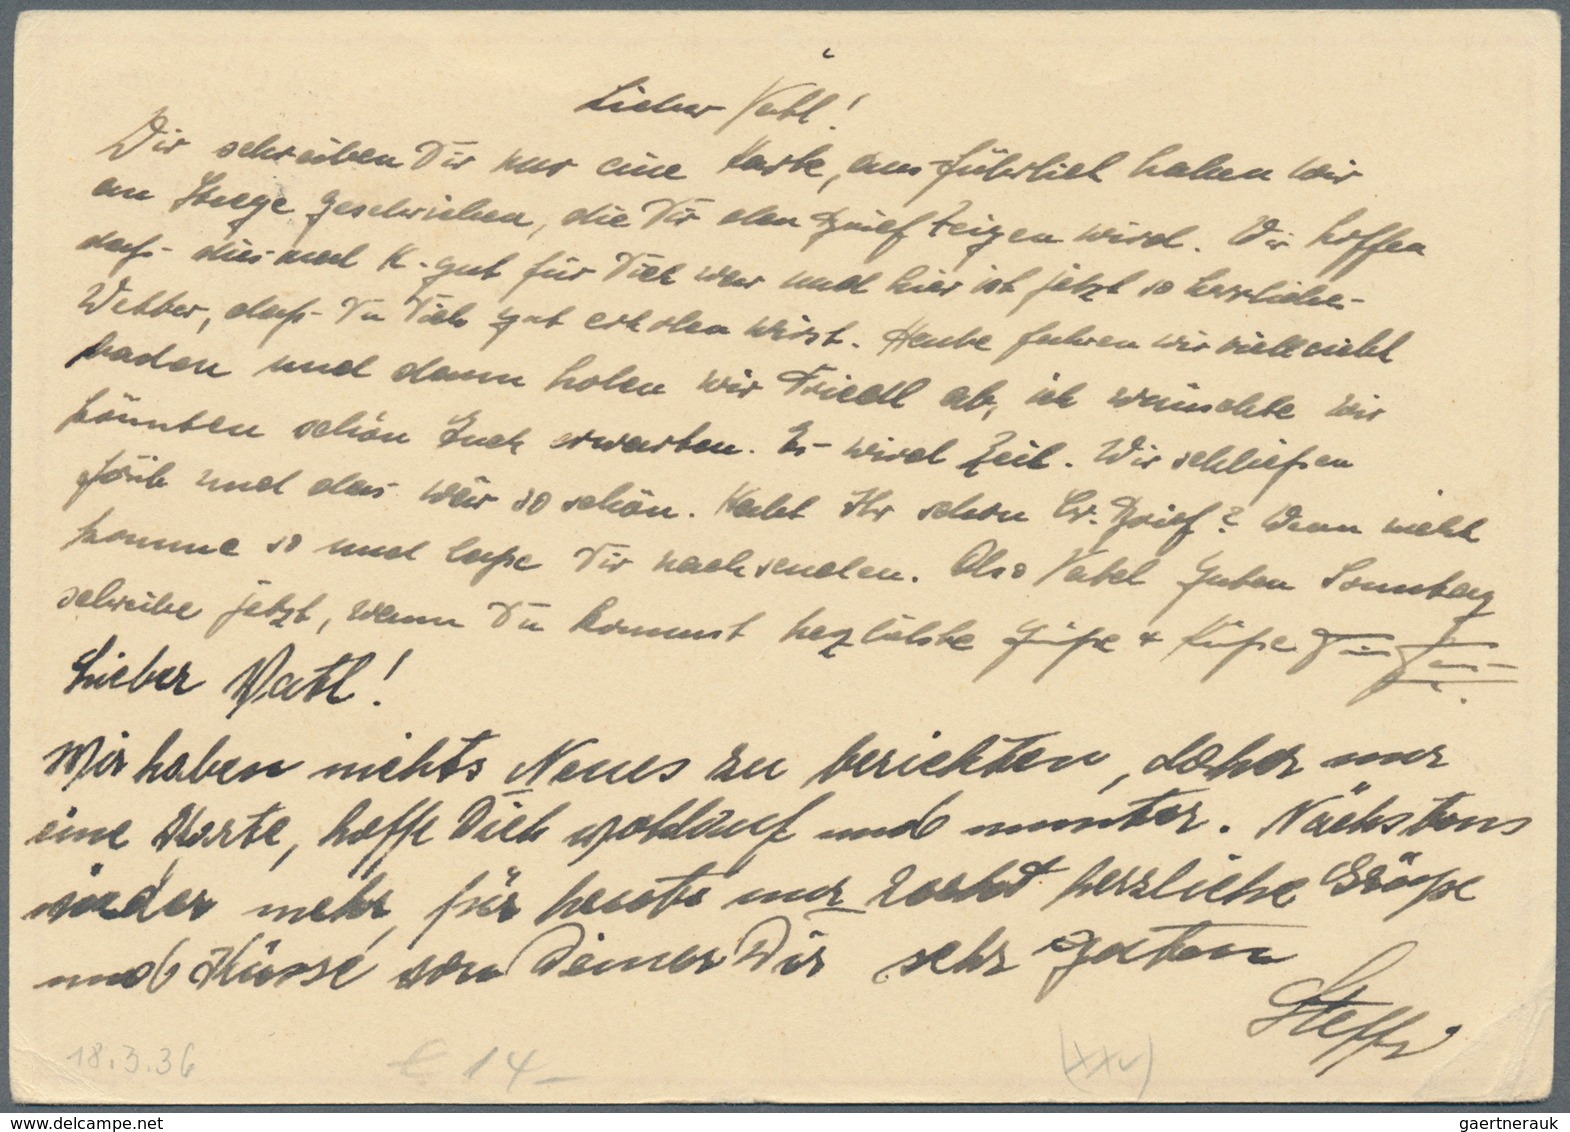 Lieber Vatl!
Wir schreiben Dir nur eine Karte, ausführlich haben wir
an geschrieben, die Dir den Brief zeigen wird. Wir hoffen
daß diesmal K. gut für Dich war und hier ist jetzt so herrliches
Wetter, daß Du Dich gut erholen wirst. Heute fahren wir vielleicht
baden und dann holen wir Friedl ab, ich wünschte wir
könnten schon Euch erwarten. Es wird Zeit. Wir schließen
früh und das wär so schön. Habt Ihr schon Brief? Wenn nicht
komme so und lasse Dir nachsenden. Also Vatel guten Sonntag
schreibe jetzt, wann Du kommst herzlichste Grüße + Küsse
Lieber Vatl!
Wir haben nichts Neues zu berichten, daher nur
eine Karte, hoffe Dich wohlauf und munter. Nächstens
wieder mehr, für heute nur recht herzliche Grüße
und Küsse von Deiner Dir sehr guten
Steffi
18.3.36
€ 14-
(XXV)
www.delcampe.net
gaertnerauk